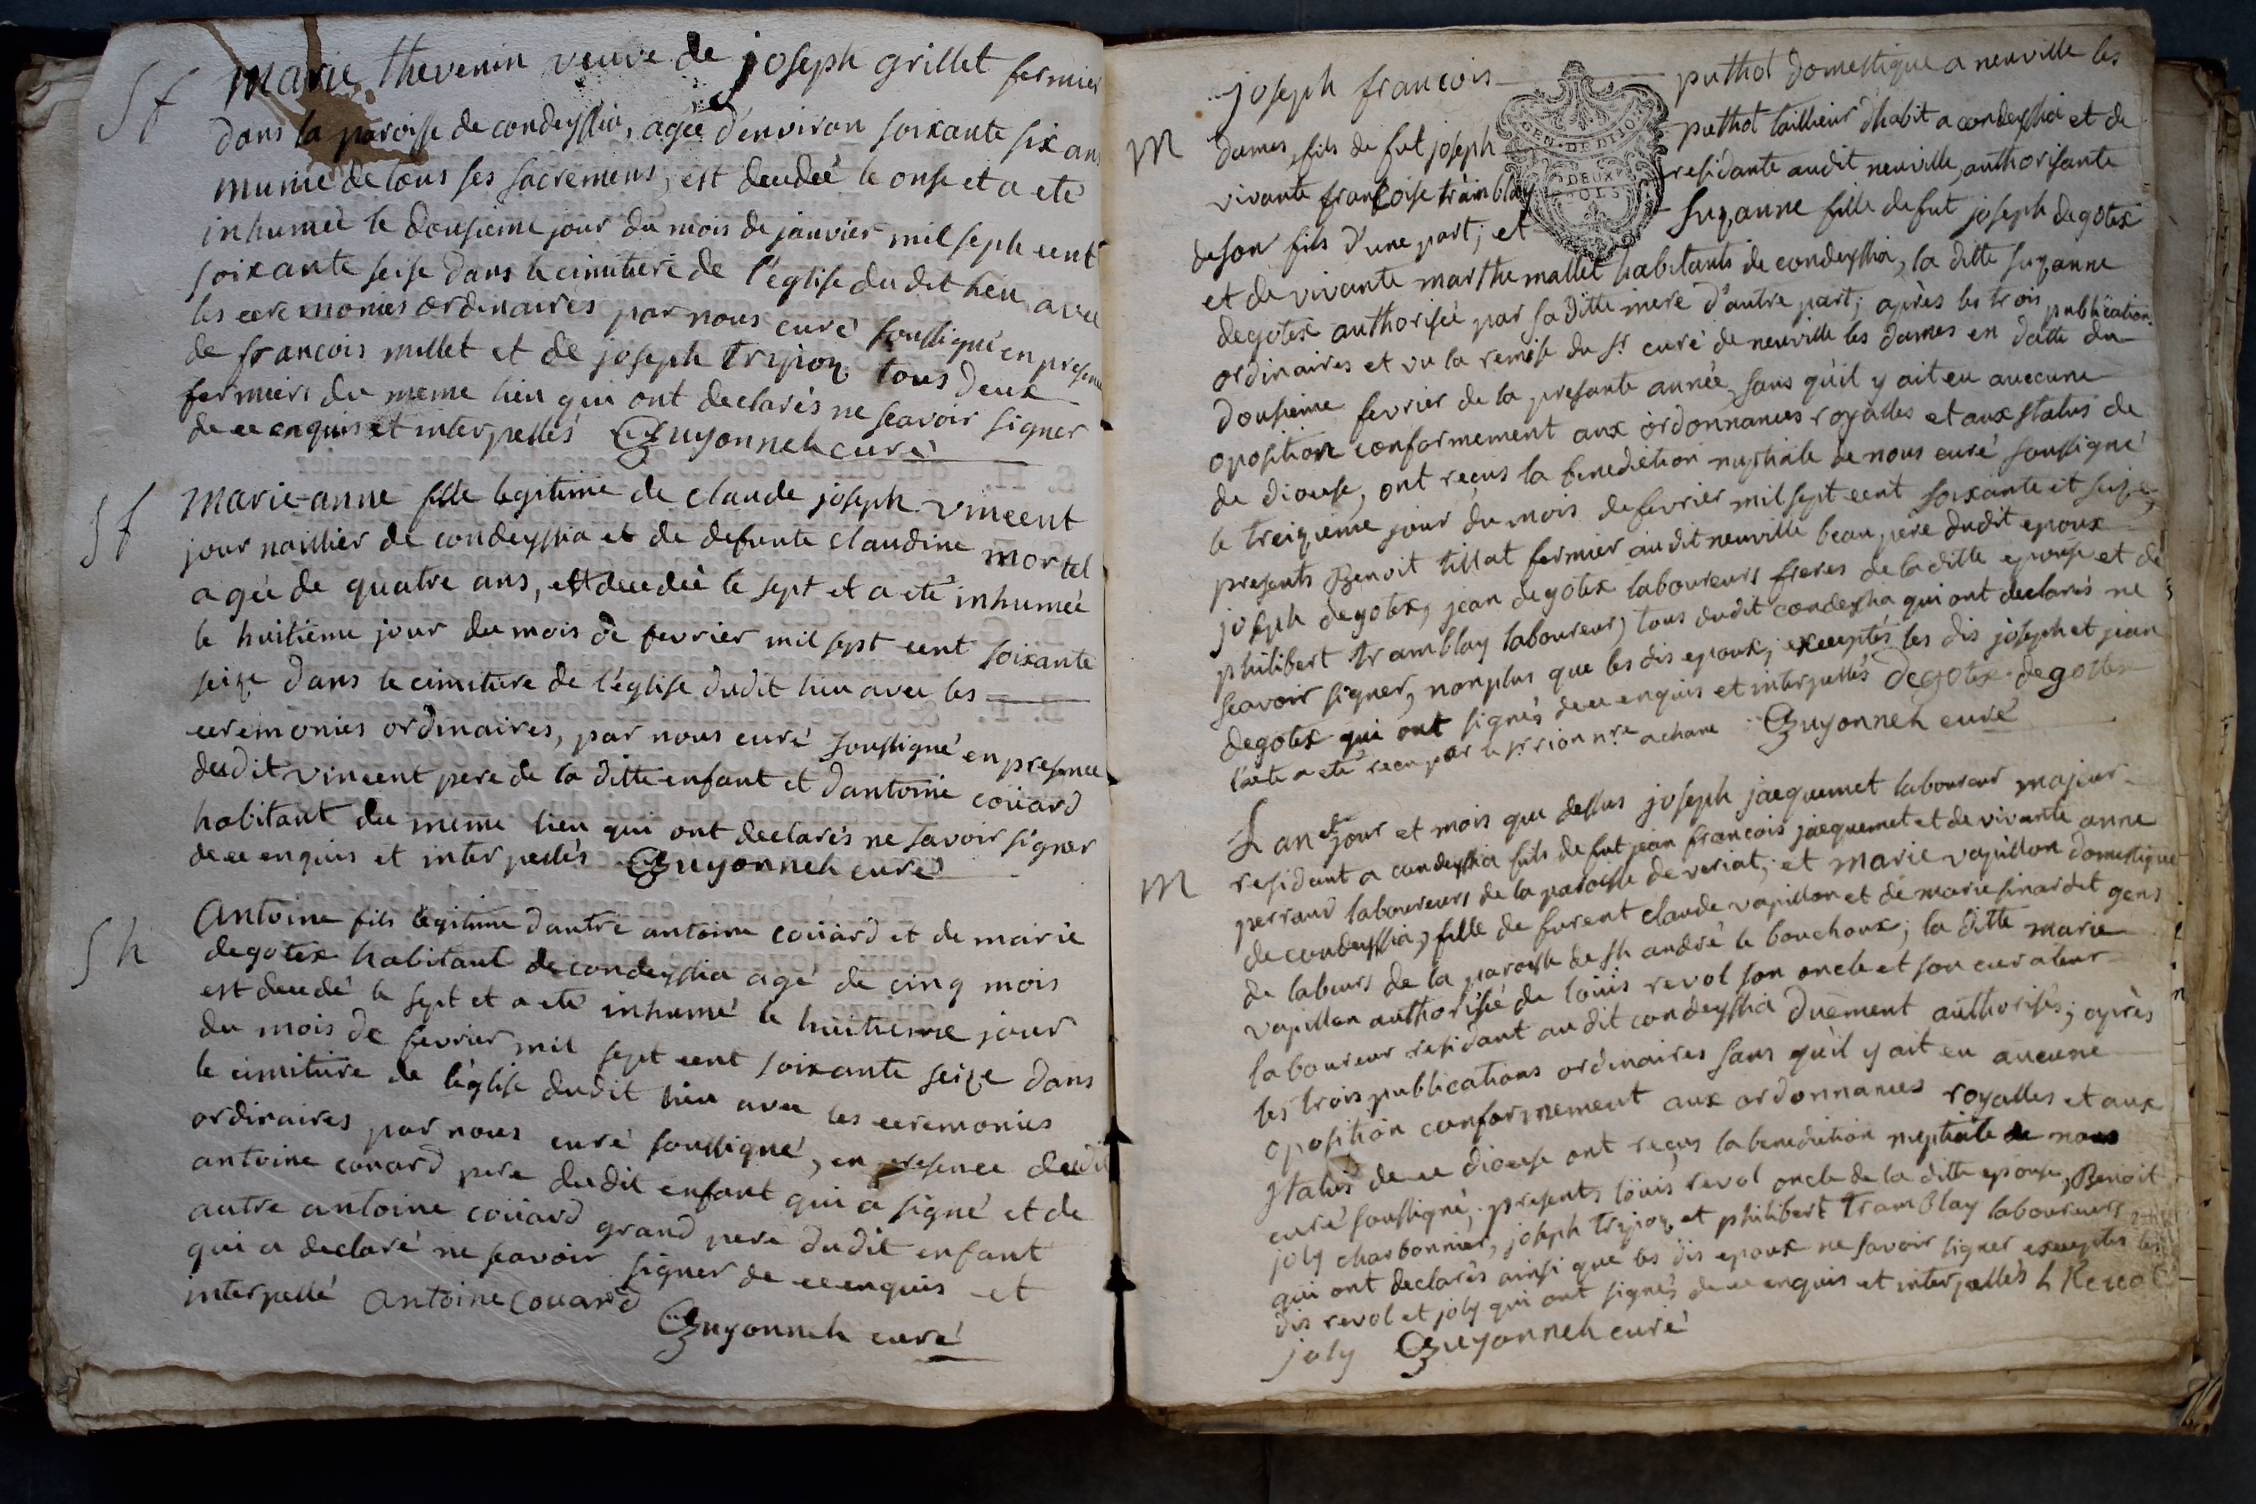 Sf
marie thevenin veuve de joseph grillet fermier
dans la paroisse de condeyssia, agée d'environ soixante six ans
munie de tous ses sacremens, est decedée le onse et a eté
inhumée le dousieme jour du mois de janvier mil seph cent
soixante seise dans le cimitiere de l'église du dit lieu avec
les ceremonies ordinaires par nous curé soussigné en presence
de francois millet et de joseph tripoz tous deux
fermiers du meme lieu qui ont declarés ne scavoir signer
de ce enquis et interpellés Guyonneh curé
Sf
marie-anne fille legitime de claude joseph vincent
journaillier de condeyssia et de defunte claudine mortel
agée de quatre ans, est decedée le sept et a eté inhumée
le huitieme jour du mois de fevrier mil sept cent soixante
seize dans le cimitiere de l'église dudit lieu avec les
ceremonies ordinaires, par nous curé soussigné en presence
dudit vincent pere de la ditte enfant et d'antoine coüard
habitant du meme lieu qui ont declarés ne savoir signer
de ce enquis et interpellés Guyonneh curé
Sh
Antoine fils legitime d'autre antoine coüard et de marie
degotex habitant de condeyssia agé de cinq mois
est decedé le sept et a eté inhumé le huitieme jour
du mois de fevrier mil sept cent soixante seize dans
le cimitiere de l'église dudit lieu avec les ceremonies
ordinaires par nous curé soussigné, en presence dudit
antoine couard pere dudit enfant qui a signé et de
autre antoine coüard grand pere dudit enfant
qui a declaré ne scavoir signer de ce enquis et
interpellé Antoine Couard
Guyonneh curé
joseph francois puthot domestique a neuville les
GEN. DE DIJON
DEUX
SOLS
M
dames, fils de fut joseph puthot taillieur dhabit a condeyssia et de
vivante francoise tramblay residante audit neuville, authorisante
de son fils d'une part; et Suzanne fille de fut joseph degotex
et de vivante marthe mallet habitants de condeyssia, la ditte suzanne
degotex authorisée par sa ditte mere d'autre part; après les trois publications
ordinaires et vu la remise du sr. curé de neuville les dames en datte du
dousieme fevrier de la presante année, sans qu'il y ait eu aucune
oposition conformement aux ordonnances royalles et aux status de
ce diocese, ont reçus la benediction nuptiale de nous curé soussigné
le treizieme jour du mois de fevrier mil sept cent soixante et seize,
presents Benoit tillat fermier audit neuville beau pere dudit epoux
joseph degotex, jean degotex laboureurs freres de la ditte epouse et de
philibert tramblay laboureur, tous dudit condeyssia qui ont declarés ne
scavoir signer, nonplus que les dis epoux; exceptés les dis joseph et jean
degotex qui ont signés de ce enquis et interpellés Degotex degotex
l'acte a eté recu par le sr. rion nre a chane Guyonneh curé
M
L'an et jour et mois que dessus joseph jacquemet laboureur majeur
residant a condeyssia fils de fut jean francois jacquemet et de vivante anne
perraud laboureurs de la paroisse de veriat; et marie vapillon domestique
de condeyssia, fille de furent claude vapillon et de marie sinardet gens
de labeurs de la paroisse de sh andré le bouchoux; la ditte marie
vapillon authorisée de loüis revol son oncle et son curateur
laboureur residant audit condeyssia duement authorisés; après
les trois publications ordinaires sans qu'il y ait eu aucune
oposition conformement aux ordonnances royalles et aux
status de ce diocese ont reçus la benediction nuptiale de nous
curé soussigné, presents loüis revol oncle de la ditte epouse, Benoit
joly charbonnier, joseph tripoz et philibert tramblay laboureurs
qui ont declarés ainsi que les dis epoux ne savoir signer exceptés les
dis revol et joly qui ont signés de ce enquis et interpellés L Revol
joly Guyonneh curé